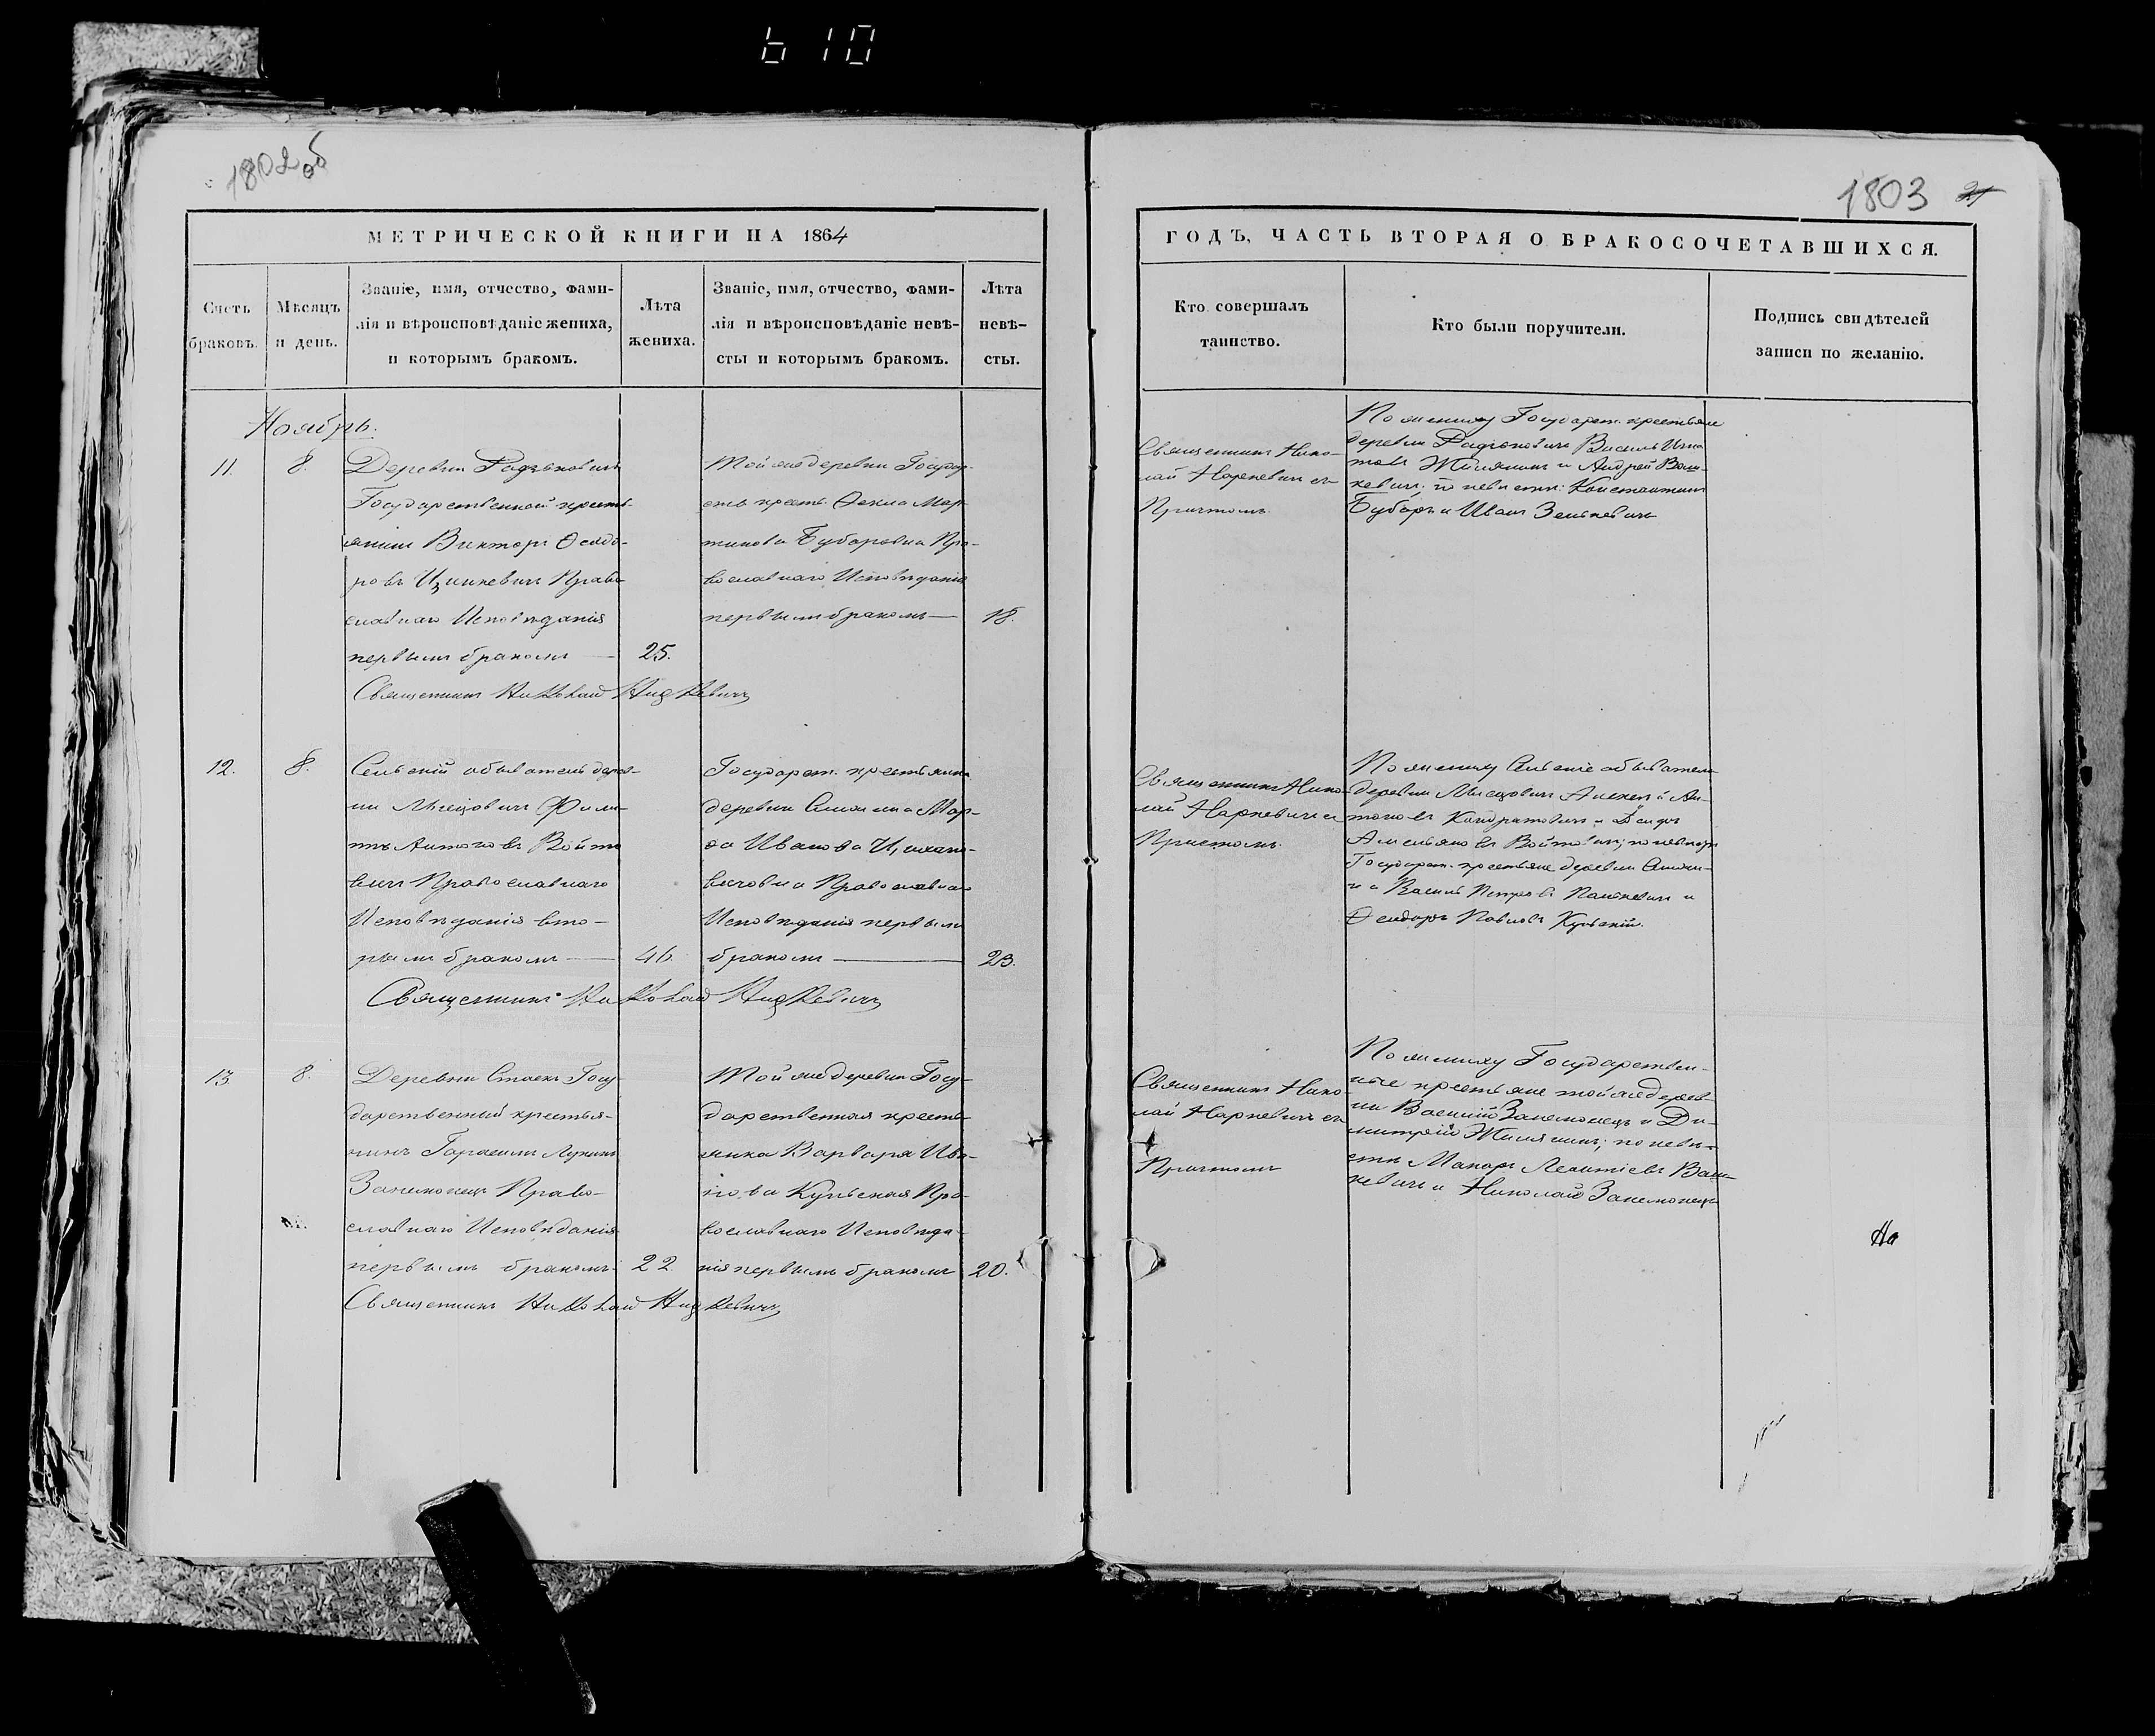 610
1802 об
1803 21
МЕТРИЧЕСКОЙ КНИГИ НА 1864
ГОДЪ, ЧАСТЬ ВТОРАЯ О БРАКОСОЧЕТАВШИХСЯ.
Счетъ
браковъ.
Мѣсяцъ
и день.
Званіе, имя, отчество, фами-
лія и вѣроисповѣданіе жениха,
и которымъ бракомъ.
Лѣта
жениха.
Званіе, имя, отчество, фами-
лія и вѣроисповѣданіе невѣ-
сты и которымъ бракомъ.
Лѣта
невѣ-
сты.
Кто совершалъ
таинство.
Кто были поручители.
Подпись свидѣтелей
записи по желанію.
Ноябрь.
11.
8.
Деревни
Государственной кресть-
янинъ Викторъ Ѳеодо-
ровъ Право
славнаго Исповѣданія
первымъ бракомъ
25.
Священникъ Николай
Той же деревни Государ-
ств. крест. Ѳекла Мар-
тинова Бубаровна Пра-
вославнаго Исповѣданія
первымъ бракомъ
18.
Священникъ Нико-
лай Наркевичъ съ
Причтомъ.
По жениху Государст. крестьяне
деревни Василь Игна
товъ Жилянинъ и Андрей Ваш-
кевичъ; по невѣстѣ: Константинъ
Бубаръ и Иванъ Зенкевичъ
12.
8.
Сельскій обыватель дерев-
ни Филиппъ Антоновъ Войто
вичъ Православнаго
Исповѣданія вто-
рымъ бракомъ
46.
Священникъ Николай
Государст. крестьянка
деревни Мар-
ѳа Иванова
Православнаго
Исповѣданія первымъ
бракомъ
23.
Священникъ Нико-
лай Наркевичъ съ
Причтомъ.
По жениху Сельскіе обыватели
деревни Алексѣй Ан-
тоновъ Кондратовичъ и
Емельяновъ Войтовичъ; по невѣстѣ
Государст. крестьяне деревни
Василь Петровъ и
Ѳеодоръ Павловъ Кульскій.
13.
8.
Деревни Стаекъ Госу-
дарственный крестья-
нинъ Герасимъ Лукинъ
Занемонецъ Право-
славнаго Исповѣданія
первымъ бракомъ
22.
Священникъ Николай
Той же деревни Госу-
дарственная кресть-
янка Варвара Ива-
нова Кульская Пра-
вославнаго Исповѣда-
нія первымъ бракомъ
20.
Священникъ Нико-
лай Наркевичъ съ
Причтомъ
По жениху Государствен-
ные крестьяне той же дерев-
ни Василій Занемонецъ и Ди-
митрій Жилянинъ; по невѣ-
стѣ Макаръ Леонтіевъ Ваш-
кевичъ и Николай Занемонецъ
На